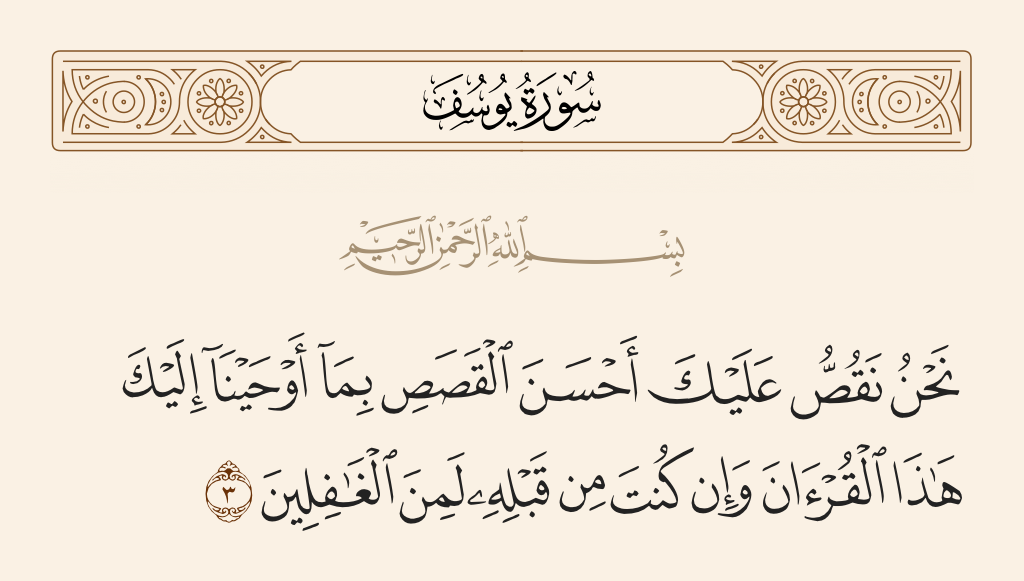 سُورَةُ يُوسُفَ
بِسْمِ ٱللَّهِ ٱلرَّحْمَٰنِ ٱلرَّحِيمِ
نَحْنُ نَقُصُّ عَلَيْكَ أَحْسَنَ ٱلْقَصَصِ بِمَآ أَوْحَيْنَآ إِلَيْكَ
هَٰذَا ٱلْقُرْءَانَ وَإِن كُنتَ مِن قَبْلِهِۦ لَمِنَ ٱلْغَٰفِلِينَ ٣